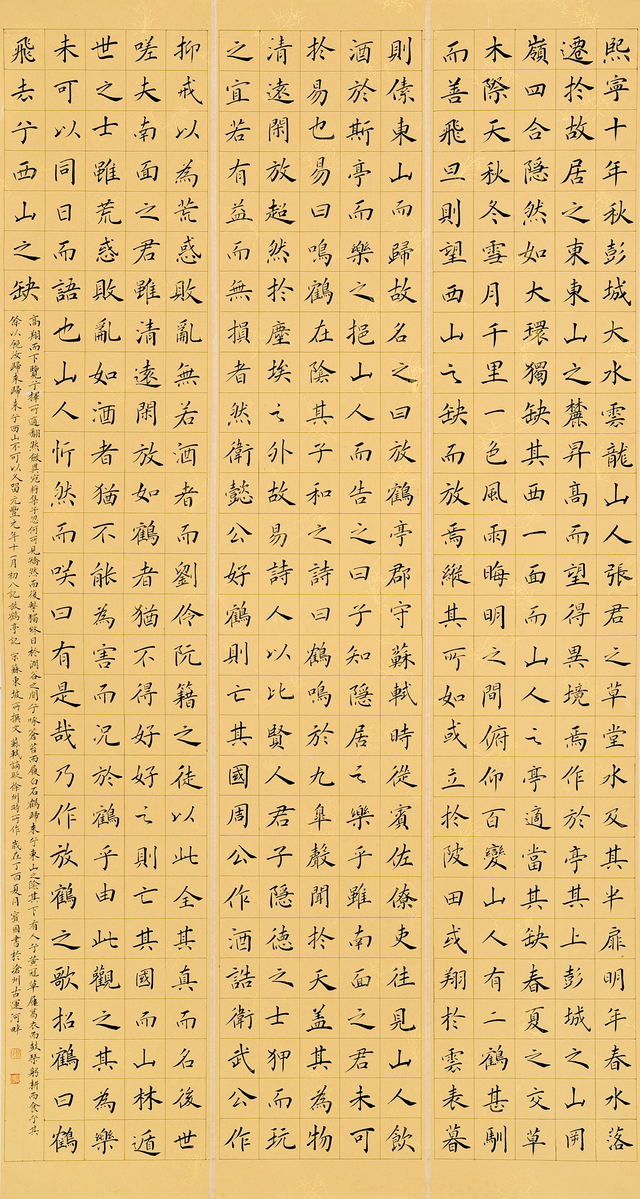 熙寧十年秋彭城大水雲龍山人張君之草堂水及其半扉明年春水落
遷於故居之東東山之麓昇高而望得異境焉作於亭其上彭城之山岡
嶺四合隱然如大環獨缺其西一面而山人之亭適當其缺春夏之交草
木際天秋冬雪月千里一色風雨晦明之間俯仰百變山人有二鶴甚馴
而善飛旦則望西山之缺而放焉縱其所如或立於陂田或翔於雲表暮
則傃東山而歸故名之曰放鶴亭郡守蘇軾時從賓佐僚吏往見山人飲
酒於斯亭而樂之挹山人而告之曰子知隱居之樂乎雖南面之君未可
於易也易曰鳴鶴在陰其子和之詩曰鶴鳴於九皋聲聞於天蓋其為物
清遠閑放超然於塵埃之外故易詩人以比賢人君子隱德之士狎而玩
之宜若有益而無損者然衛懿公好鶴則亡其國周公作酒誥衛武公作
抑戒以為荒惑敗亂無若酒者而劉伶阮籍之徒以此全其真而名後世
嗟夫南面之君雖清遠閑放如鶴者猶不得好好之則亡其國而山林遁
世之士雖荒惑敗亂如酒者猶不能為害而況於鶴乎由此觀之其為樂
未可以同日而語也山人忻然而笑曰有是哉乃作放鶴之歌招鶴曰鶴
飛去兮西山之缺
高翔而下覽兮擇所適翻然斂翼宛將集兮忽何所見矯然而復擊獨終日於澗谷之間兮啄蒼苔而履白石鶴歸來兮東山之陰其下有人兮黃冠草屨葛衣而鼓琴躬耕而食兮其
餘以飽汝歸來歸來兮西山不可以久留元豐元年十一月初八記放鶴亭記 宋蘇東坡所撰文 蘇軾謫貶徐州時所作 歲在丁酉夏月賓國書於滄州古運河畔